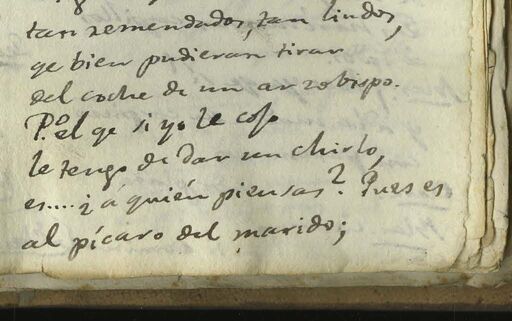 tan remendados, tan lindos,
qe bien pudieran tirar
del coche de un arzobispo.
Po. el qe si yo le cojo
le tengo de dar un chirlo,
es.... ¿á quién piensas? Pues es
al pícaro del marido;